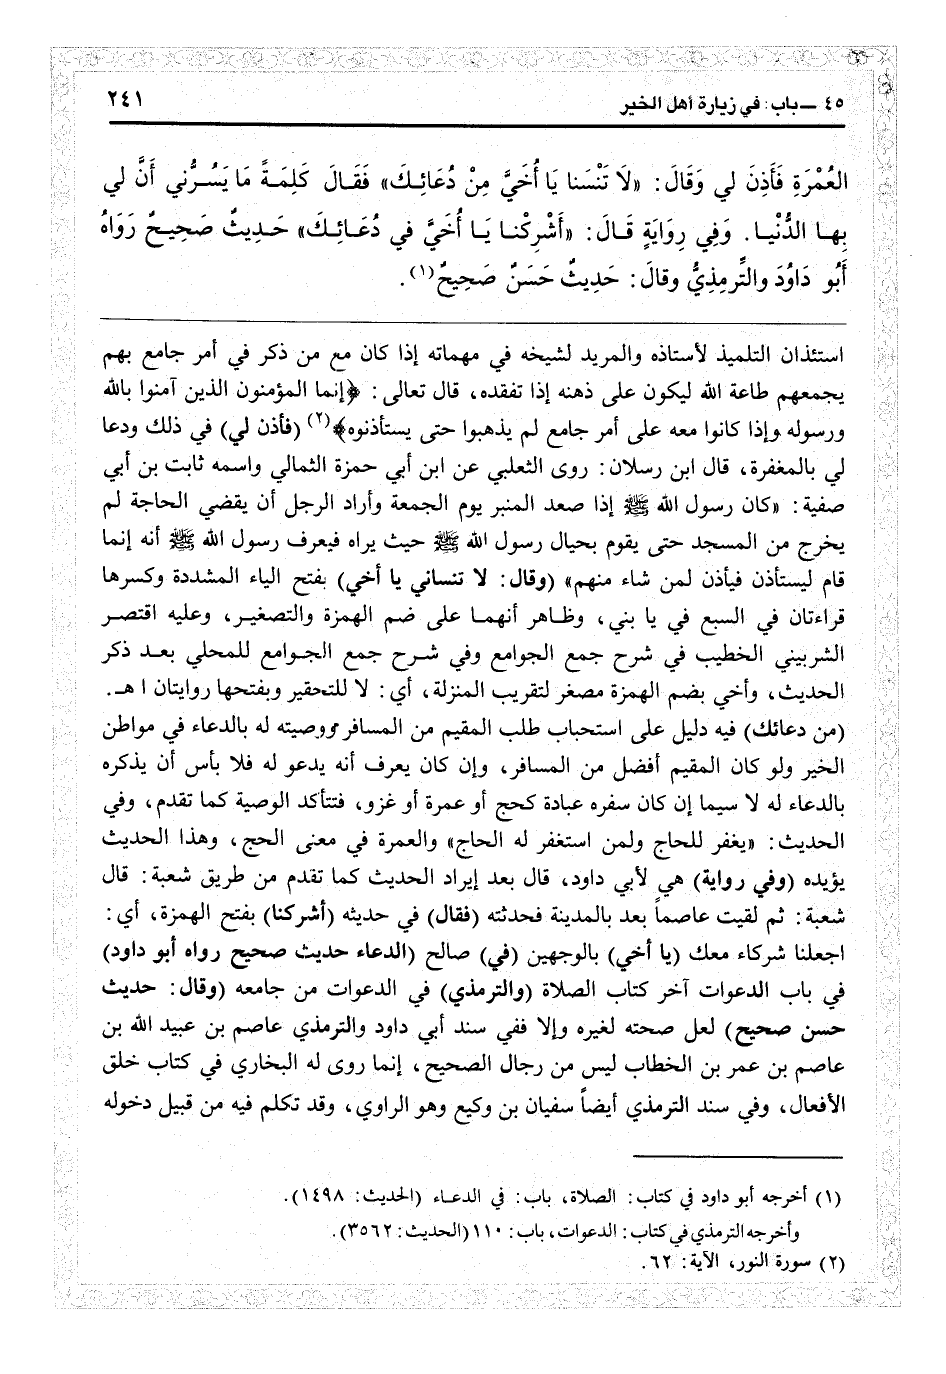 ٤٥ ــ باب: في زيارة أهل الخير
٢٤١
العُمْرَةِ فَأَذِنَ لي وَقَالَ: «لَا تَنْسَنا يَا أُخَيَّ مِنْ دُعَائِكَ» فَقَالَ كَلِمَةً مَا يَسُرُّني أَنَّ لي
بِهـا الدُّنْيـا. وَفِي رِوَايَةٍ قَـالَ: «أَشْرِكْنـا يَـا أُخَيَّ في دُعَـائِـكَ» حَـدِيثٌ صَحِيـحٌ رَوَاهُ
أَبُو دَاوُدَ والتِّرمِذِيُّ وقالَ: حَدِيثٌ حَسَنٌ صَحِيحٌ(١).
استئذان التلميذ لأستاذه والمريد لشيخه في مهماته إذا كان مع من ذكر في أمر جامع بهم
يجمعهم طاعة الله ليكون على ذهنه إذا تفقده، قال تعالى: ﴿إنما المؤمنون الذين آمنوا بالله
ورسوله وإذا كانوا معه على أمر جامع لم يذهبوا حتى يستأذنوه﴾(٢) (فأذن لي) في ذلك ودعا
لي بالمغفرة، قال ابن رسلان: روى الثعلبي عن ابن أبي حمزة الثمالي واسمه ثابت بن أبي
صفية: «كان رسول الله ﷺ إذا صعد المنبر يوم الجمعة وأراد الرجل أن يقضي الحاجة لم
يخرج من المسجد حتى يقوم بحيال رسول الله ﷺ حيث يراه فيعرف رسول الله ﷺ أنه إنما
قام ليستأذن فيأذن لمن شاء منهم» (وقال: لا تنساني يا أخي) بفتح الياء المشددة وكسرها
قراءتان في السبع في يا بني، وظـاهر أنهمـا على ضم الهمزة والتصغيـر، وعليه اقتصـر
الشربيني الخطيب في شرح جمع الجوامع وفي شـرح جمع الجـوامع للمحلي بعـد ذكر
الحديث، وأخي بضم الهمزة مصغر لتقريب المنزلة، أي: لا للتحقير وبفتحها روايتان ا هـ.
(من دعائك) فيه دليل على استحباب طلب المقيم من المسافر ووصيته له بالدعاء في مواطن
الخير ولو كان المقيم أفضل من المسافر، وإن كان يعرف أنه يدعو له فلا بأس أن يذكره
بالدعاء له لا سيما إن كان سفره عبادة كحج أو عمرة أو غزو، فتتأكد الوصية كما تقدم، وفي
الحديث: «يغفر للحاج ولمن استغفر له الحاج» والعمرة في معنى الحج، وهذا الحديث
يؤيده (وفي رواية) هي لأبي داود، قال بعد إيراد الحديث كما تقدم من طريق شعبة: قال
شعبة: ثم لقيت عاصماً بعد بالمدينة فحدثته (فقال) في حديثه (أشركنا) بفتح الهمزة، أي:
اجعلنا شركاء معك (يا أخي) بالوجهين (في) صالح (الدعاء حديث صحيح رواه أبو داود)
في باب الدعوات آخر كتاب الصلاة (والترمذي) في الدعوات من جامعه (وقال: حديث
حسن صحيح) لعل صحته لغيره وإلا ففي سند أبي داود والترمذي عاصم بن عبيد الله بن
عاصم بن عمر بن الخطاب ليس من رجال الصحيح، إنما روى له البخاري في كتاب خلق
الأفعال، وفي سند الترمذي أيضاً سفيان بن وكيع وهو الراوي، وقد تكلم فيه من قبيل دخوله
(١) أخرجه أبو داود في كتاب: الصلاة، باب: في الدعـاء (الحديث: ١٤٩٨).
وأخرجه الترمذي في كتاب: الدعوات، باب: ١١٠ (الحديث: ٣٥٦٢).
(٢) سورة النور، الآية: ٦٢.